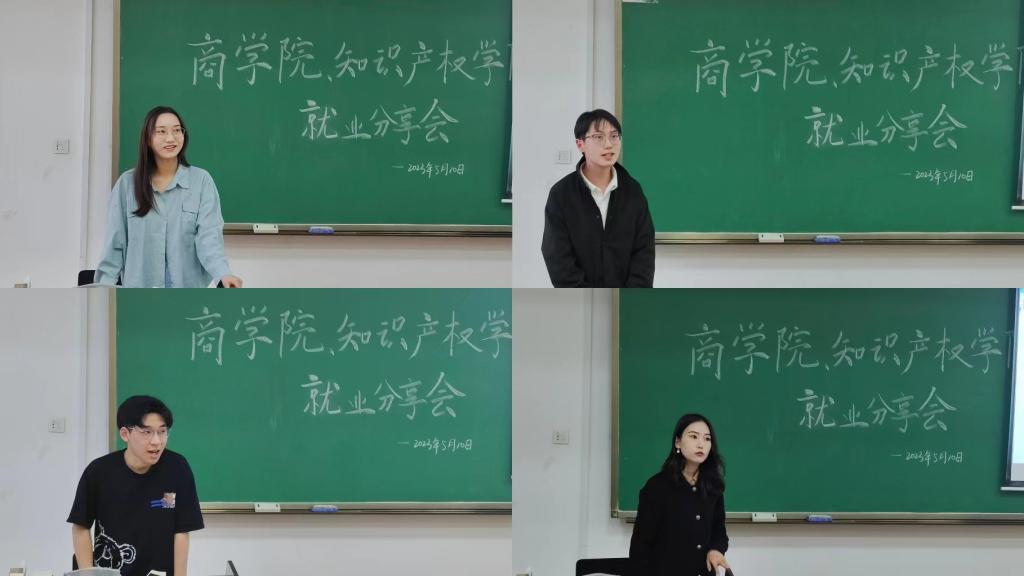 商学院、知识产权学
就业分享会
—2023年5月10日
商学院、知识产权学
就业分享会
—2023年5月10日
商学院、知识产权学
就业分享会
—2023年5月10日
商学院、知识产权学
就业分享会
—2023年5月10日